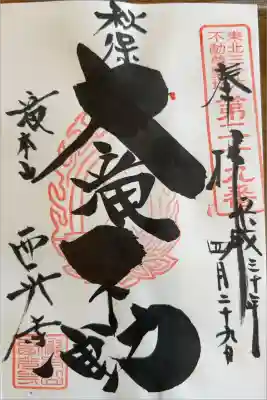 東北三十六
不動尊霊場
第二十九番
奉拝
平成三十年
四月二十九日
秋保
大滝不動
西光寺